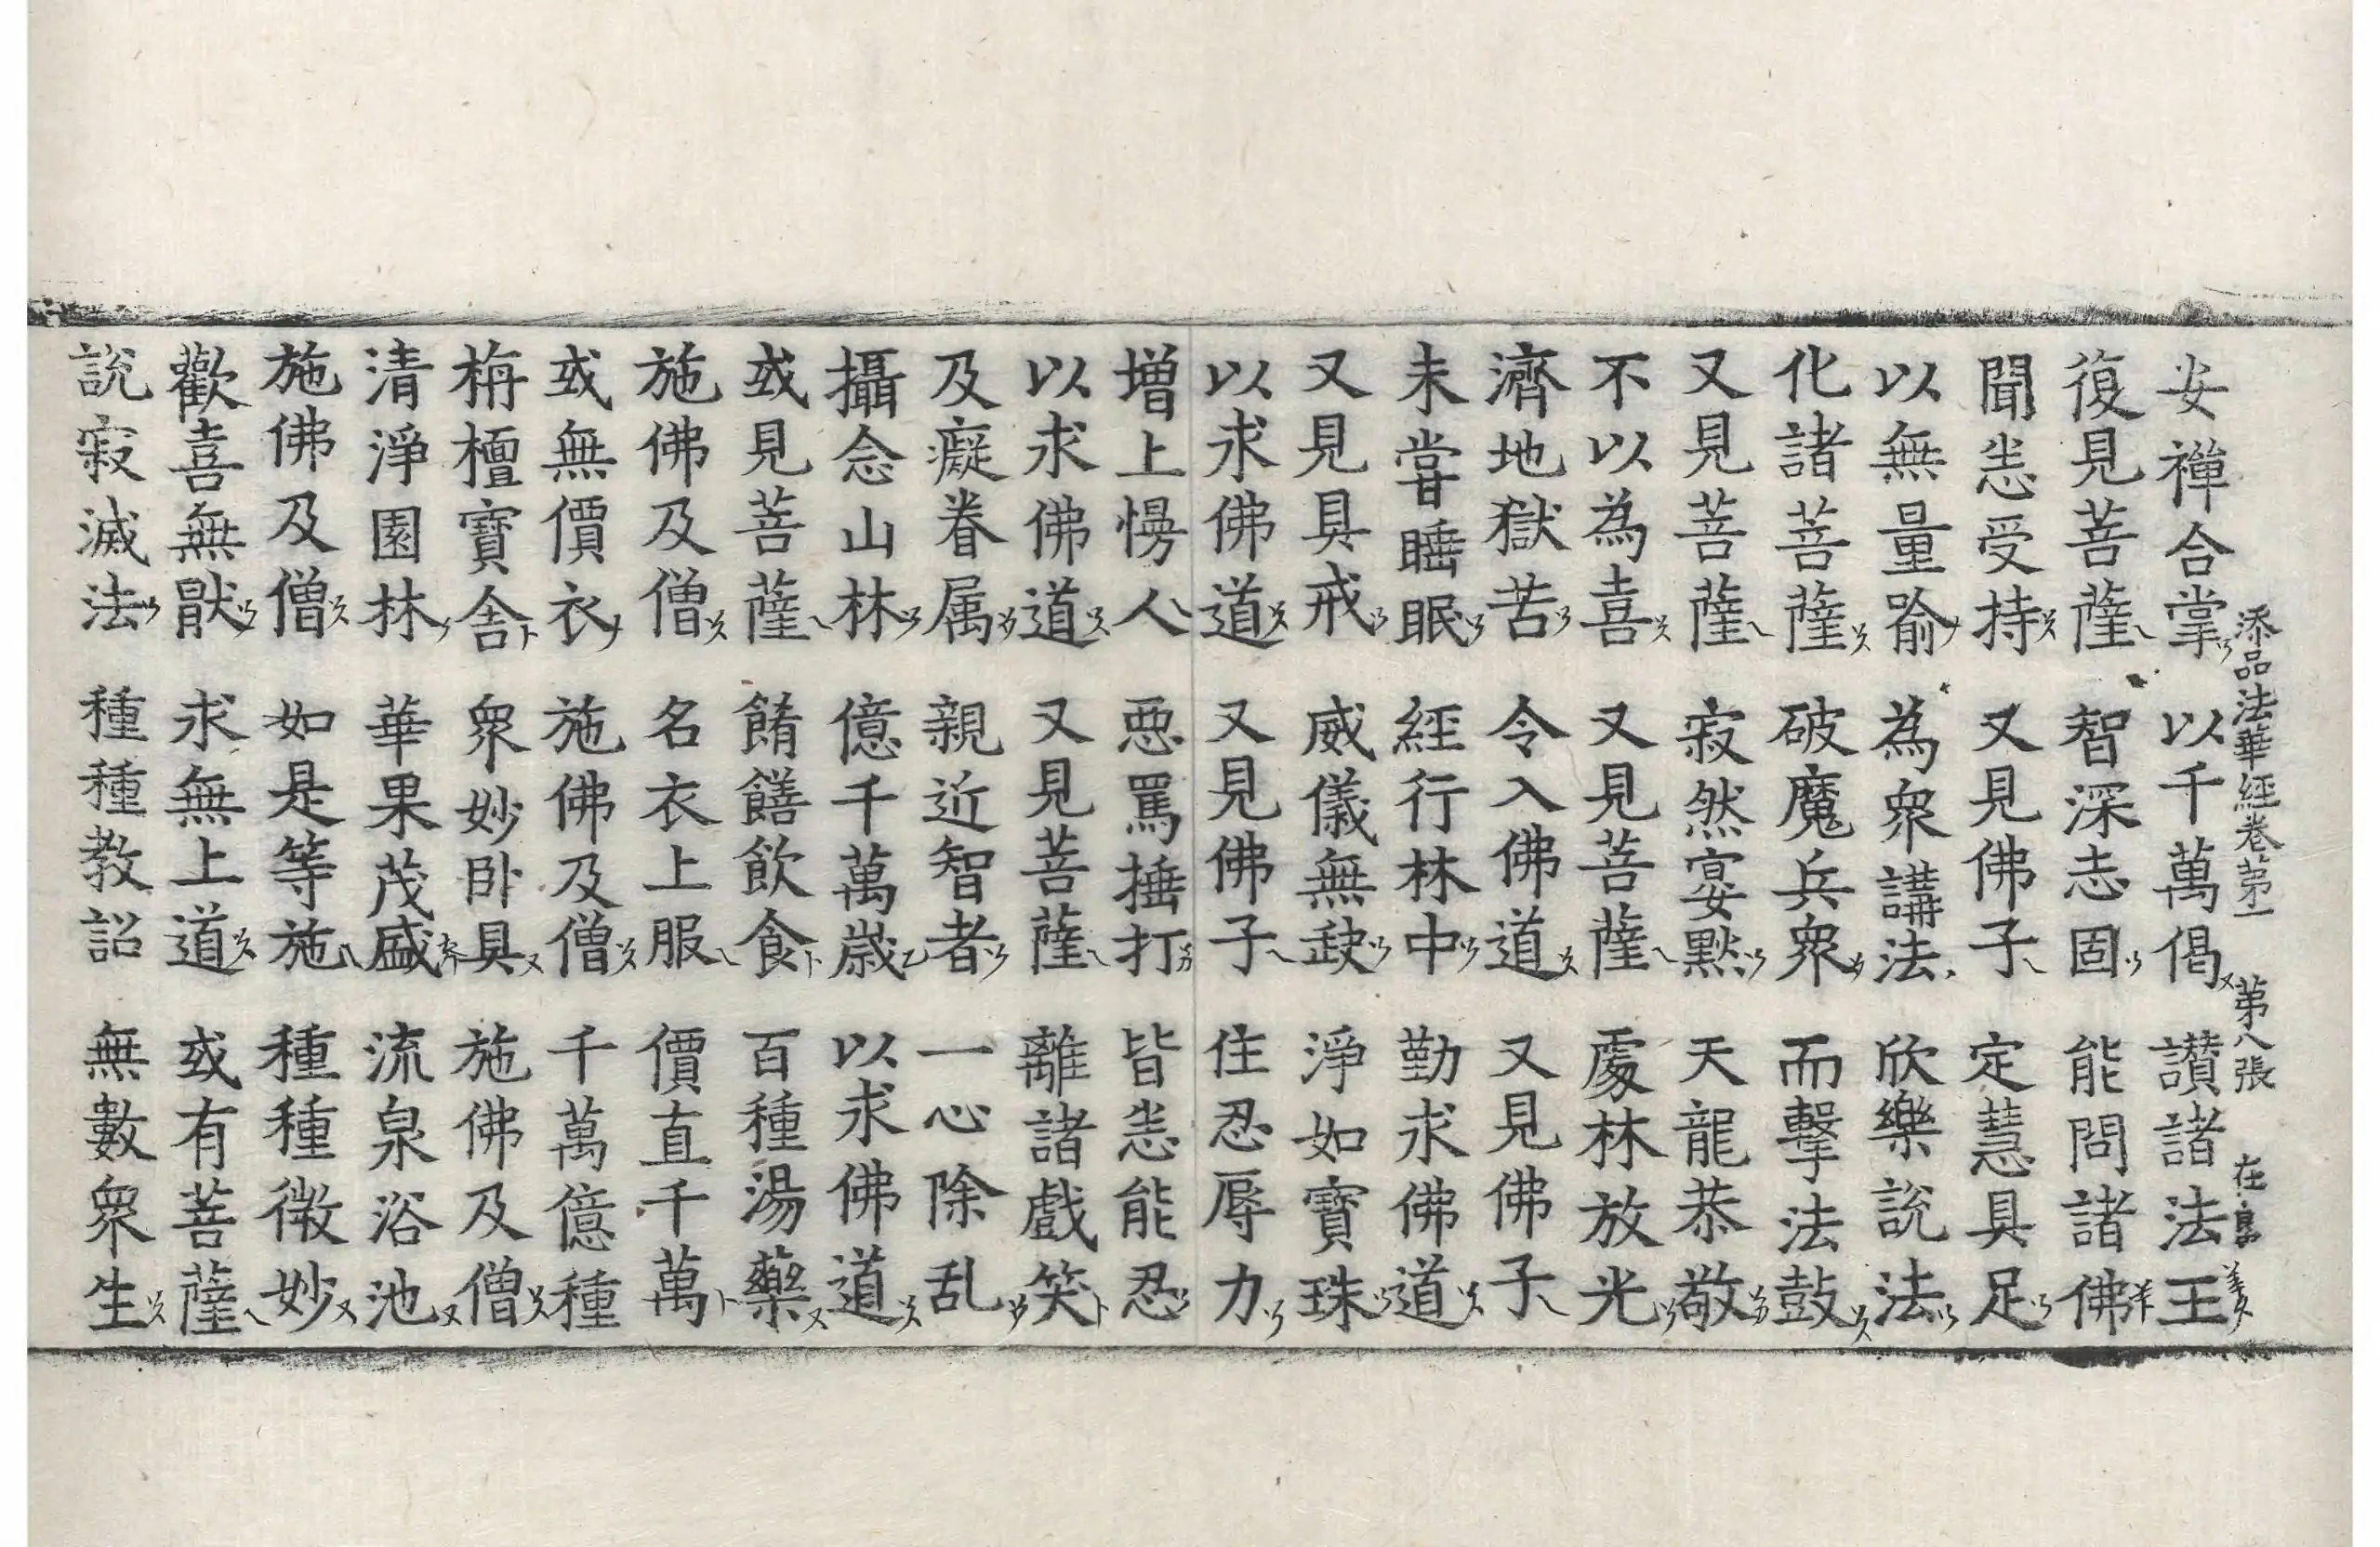 添品法華經卷第一 第八張 在
安禪合掌 以千萬偈 讃諸法王
復見菩薩 智深志固 能問諸佛
聞恚受持 又見佛子 定慧具足
以無量喻 為衆講法 欣樂說法
化諸菩薩 破魔兵衆 而擊法鼓
又見菩薩 寂然宴黙 天龍恭敬
不以為喜 又見菩薩 處林放光
濟地獄苦 令入佛道 又見佛子
未甞睡眠 經行林中 勤求佛道
又見具戒 威儀無缺 淨如寶珠
以求佛道 又見佛子 住忍辱力
增上慢人 惡罵捶打 皆悉能忍
以求佛道 又見菩薩 離諸戲笑
及癡眷属 親近智者 一心除乱
攝念山林 億千萬歳 以求佛道
或見菩薩 餚饍飲食 百種湯藥
施佛及僧 名衣上服 價直千萬
或無價衣 施佛及僧 千萬億種
栴檀寶舎 衆妙卧具 施佛及僧
清淨園林 華果茂盛 流泉浴池
施佛及僧 如是等施 種種微妙
歡喜無猒 求無上道 或有菩薩
說寂滅法 種種教詔 無數衆生